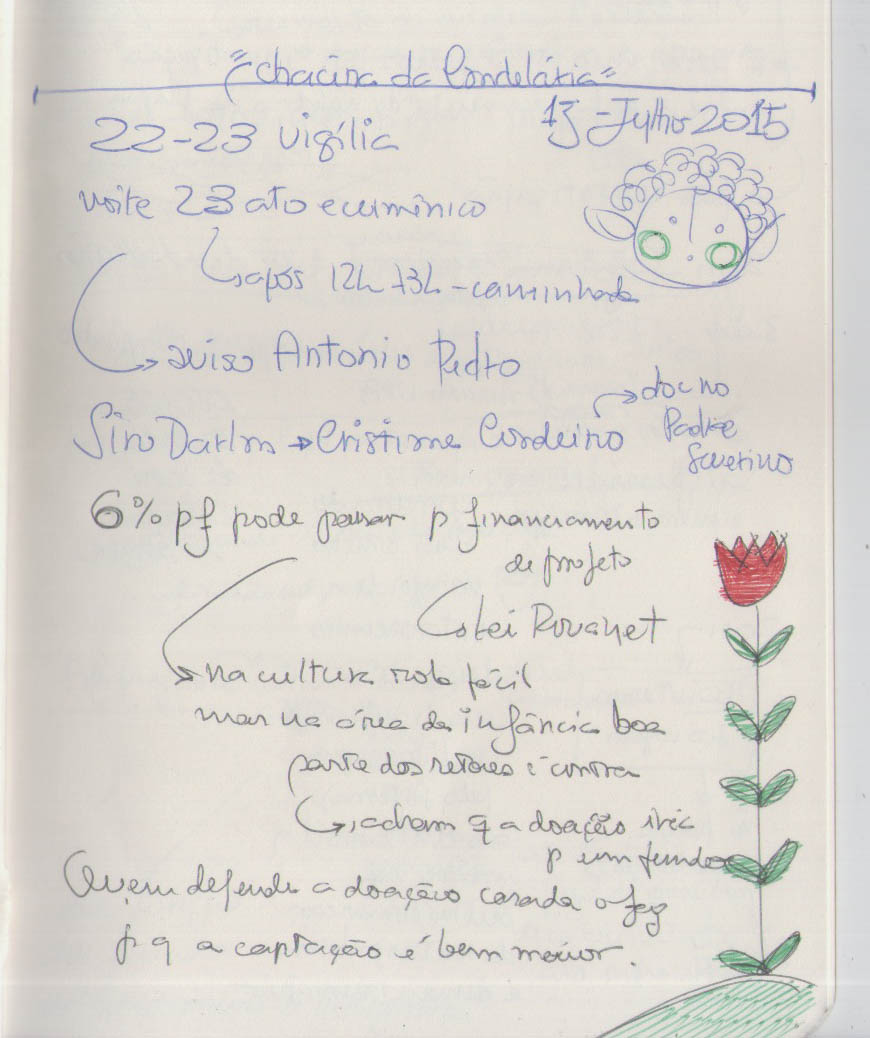 "Chacina da Candelária"
13 - Julho 2015
22-23 vigília
noite 23 ato ecumênico
após 12h 13h - caminhada
aviso Antonio Pedro
Siro Darlan → Cristiane Cordeiro → doc no
Padre
Severino
6% pf pode passar p financiamento
de projeto
Lei Rouanet
na cultura rola fácil
mas na área da infância boa
parte dos setores é contra
acham q a doação iria
p um fundo
Quem defende a doação casada o faz
p q a captação é bem maior.